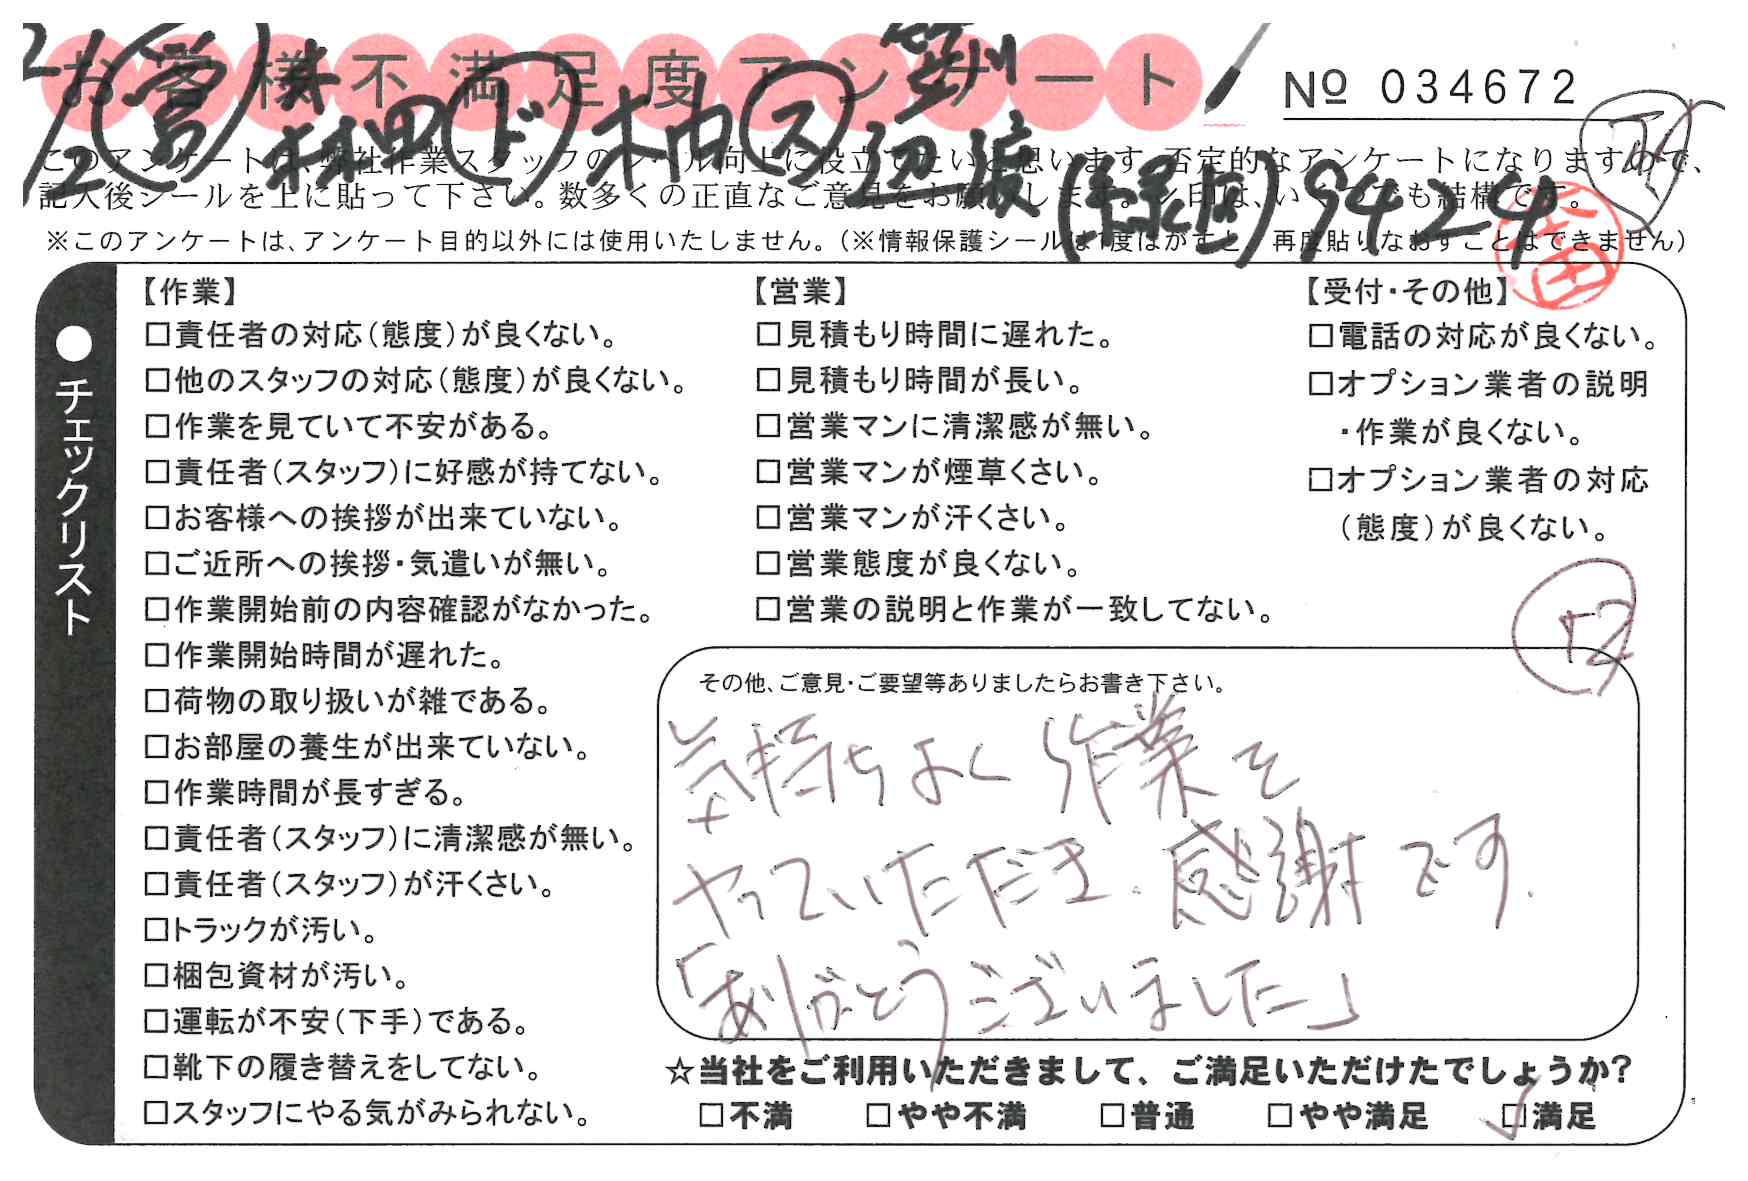 お客様不満足度アンケート
№ 034672
営 ド 柚 ス 渡辺 (緑園) 9424
このアンケートは、弊社作業スタッフのレベル向上に役立てたいと思います。否定的なアンケートになりますので、
記入後シールを上に貼って下さい。数多くの正直なご意見をお願いします。レ印は、いくつでも結構です。
※このアンケートは、アンケート目的以外には使用いたしません。(※情報保護シールは1度はがすと、再度貼りなおすことはできません)
●チェックリスト
【作業】
□責任者の対応(態度)が良くない。
□他のスタッフの対応(態度)が良くない。
□作業を見ていて不安がある。
□責任者(スタッフ)に好感が持てない。
□お客様への挨拶が出来ていない。
□ご近所への挨拶・気遣いが無い。
□作業開始前の内容確認がなかった。
□作業開始時間が遅れた。
□荷物の取り扱いが雑である。
□お部屋の養生が出来ていない。
□作業時間が長すぎる。
□責任者(スタッフ)に清潔感が無い。
□責任者(スタッフ)が汗くさい。
□トラックが汚い。
□梱包資材が汚い。
□運転が不安(下手)である。
□靴下の履き替えをしてない。
□スタッフにやる気がみられない。
【営業】
□見積もり時間に遅れた。
□見積もり時間が長い。
□営業マンに清潔感が無い。
□営業マンが煙草くさい。
□営業マンが汗くさい。
□営業態度が良くない。
□営業の説明と作業が一致してない。
【受付・その他】
□電話の対応が良くない。
□オプション業者の説明
・作業が良くない。
□オプション業者の対応
(態度)が良くない。
その他、ご意見・ご要望等ありましたらお書き下さい。
気持ちよく作業を
やっていただき、感謝です.
「ありがとうございました」
☆当社をご利用いただきまして、ご満足いただけたでしょうか?
□不満 □やや不満 □普通 □やや満足 ☑満足